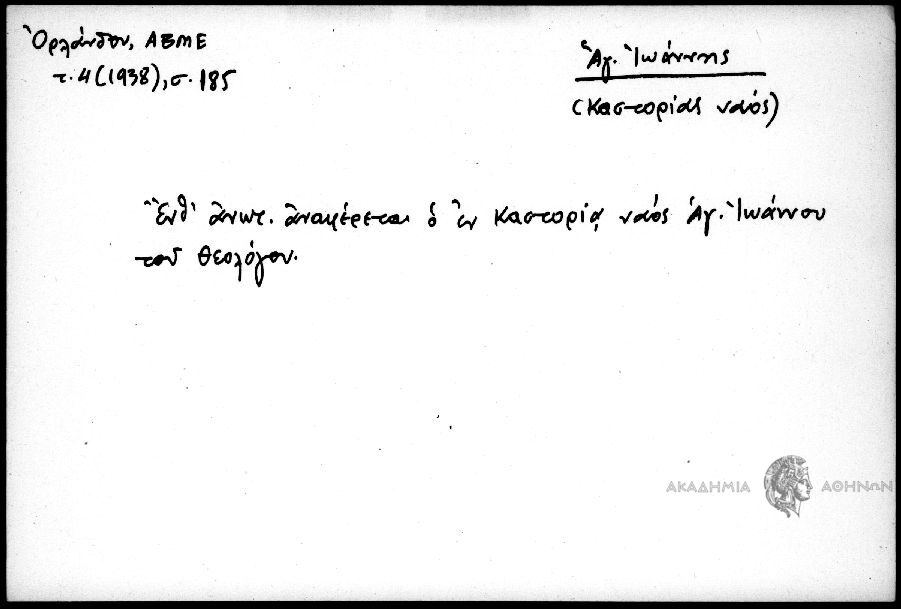 Ὀρλάνδου, ΑΒΜΕ
τ. 4 (1938), σ. 185
Ἁγ. Ἰωάννης
(Καστοριᾶς ναός)
Ἔνθ' ἀνωτ. ἀναφέρεται ὁ ἐν Καστορίᾳ ναός Ἁγ. Ἰωάννου
τοῦ Θεολόγου.
ΑΚΑΔΗΜΙΑ ΑΘΗΝΩΝ